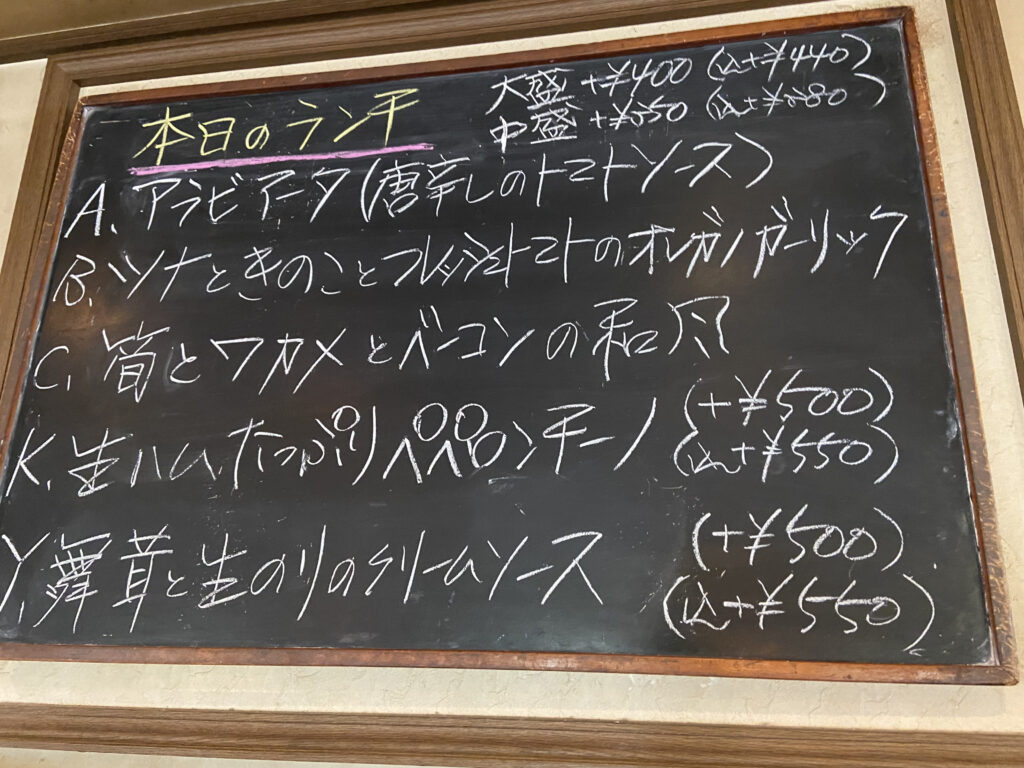 本日のランチ
大盛 +¥400 (込+¥440)
中盛 +¥350 (込+¥380)
A. アラビアータ(唐辛しのトマトソース)
B. ツナときのことフレッシュトマトのオレガノガーリック
C. 筍とワカメとベーコンの和风
K. 生ハムたっぷりペペロンチーノ (+¥500)
(込+¥550)
Y. 舞茸と生のりのクリームソース (+¥500)
(込+¥550)